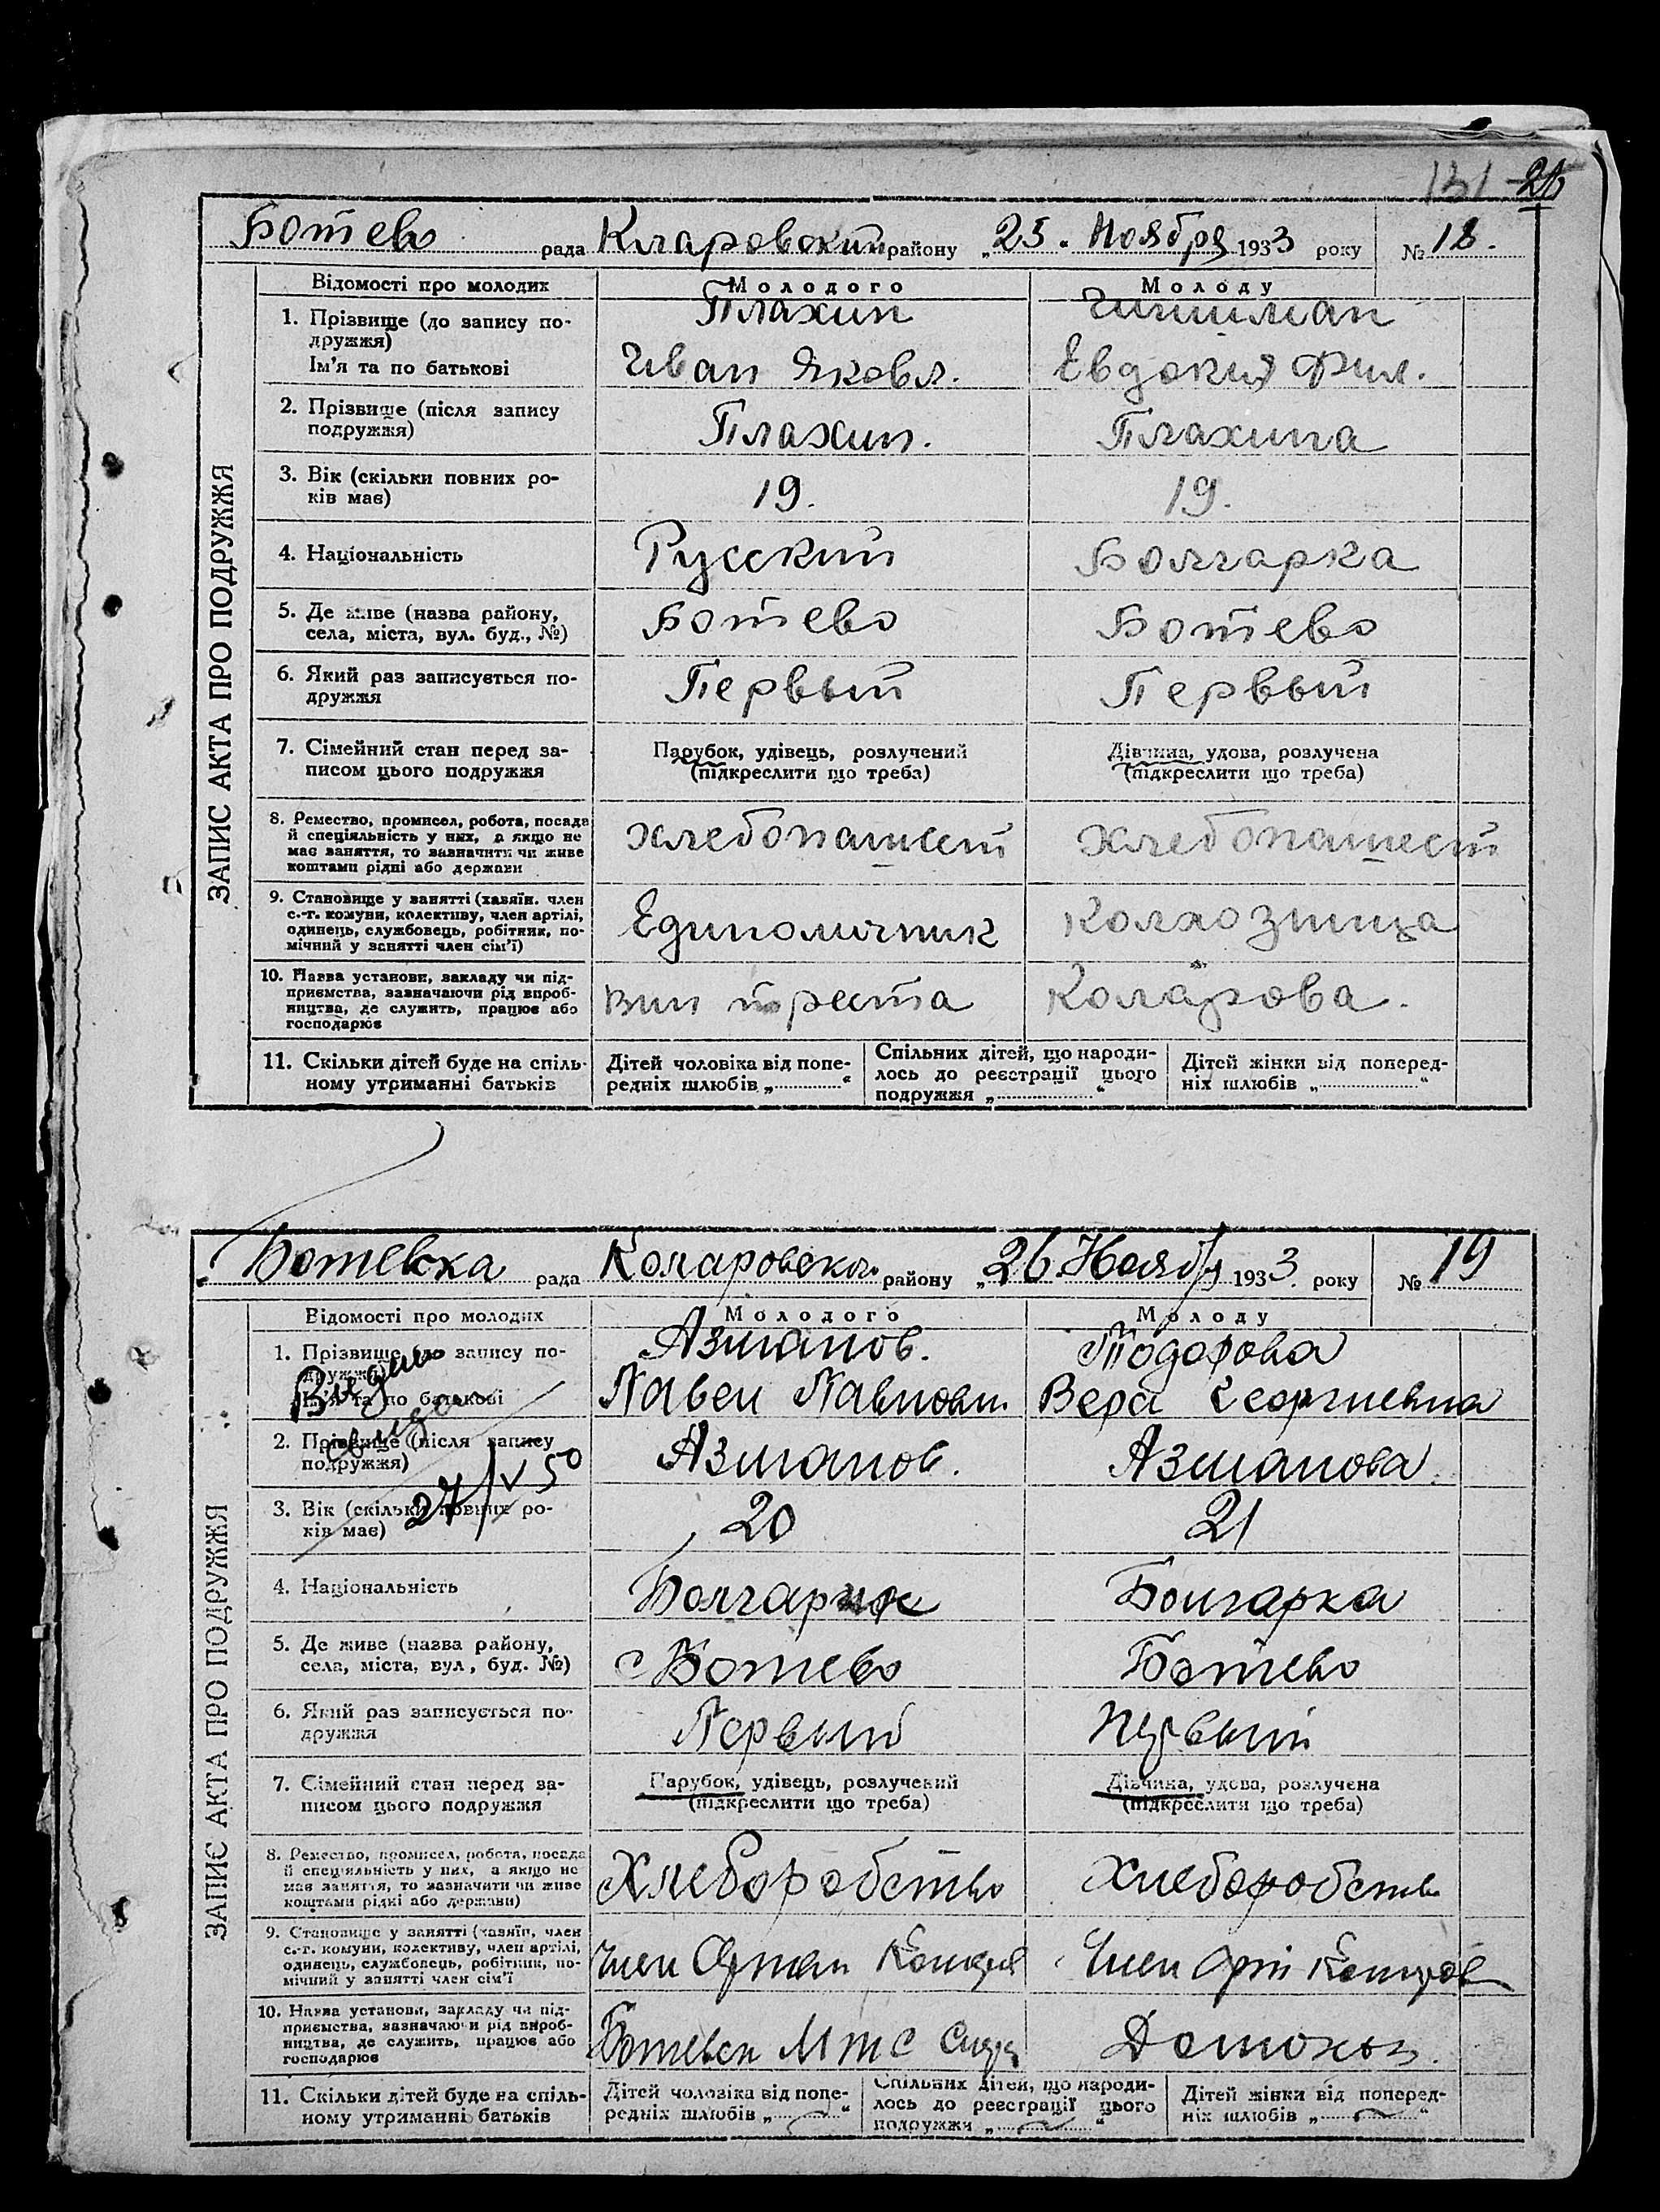 131 26
Ботево рада Кларовский району „25. Ноября 1933 року № 18.
ЗАПИС АКТА ПРО ПОДРУЖЖЯ
Відомості про молодих Молодого Молоду
1. Прізвище (до запису по- Плахин Чишман
дружжя)
Ім'я та по батькові Иван Яковл. Евдокия Фил.
2. Прізвище (після запису Плахин. Плахина
подружжя)
3. Вік (скільки повних ро- 19. 19.
ків має)
4. Національність Русский Болгарка
5. Де живе (назва району, Ботево Ботево
села, міста, вул. буд., №)
6. Який раз записується по- Первый Первый
дружжя
7. Сімейний стан перед за- Парубок, удівець, розлучений Дівчина, удова, розлучена
писом цього подружжя (підкреслити що треба) (підкреслити що треба)
8. Ремество, промисел, робота, посада хлебопашест хлебопашест
й спеціяльність у них, а якщо не
має заняття, то зазначити чи живе
коштами рідні або держави
9. Становище у занятті (хазяїн. член Единоличник Колхозница
с.-г. комуни, колективу, член артілі,
одинець, службовець, робітник, по-
мічний у занятті член сім'ї)
10. Назва установи, закладу чи під- Вин треста Коларова.
приємства, зазначаючи рід вироб-
ництва, де служить, працює або
господарює
11. Скільки дітей буде на спіль- Дітей чоловіка від попе- Спільних дітей, що народи- Дітей жінки від поперед-
ному утриманні батьків редніх шлюбів „ “ лось до реєстрації цього ніх шлюбів „ “
подружжя „ “
Ботевка рада Коларовск. району „26 Ноябр 1933. року № 19
ЗАПИС АКТА ПРО ПОДРУЖЖЯ
Відомості про молодих Молодого Молоду
1. Прізвище (до запису по- Азманов. Тодорова
дружжя)
Ім'я та по батькові Павел Павлович. Вера Георгиевна
Видано
27/V 50
2. Прізвище (після запису Азманов. Азманова.
подружжя)
3. Вік (скільки повних ро- 20 21
ків має)
4. Національність Болгарин Болгарка
5. Де живе (назва району, с Ботево Ботево
села, міста, вул, буд. №)
6. Який раз записується по- Первый Первый
дружжя
7. Сімейний стан перед за- Парубок, удівець, розлучений Дівчина, удова, розлучена
писом цього подружжя (підкреслити що треба) (підкреслити що треба)
8. Ремество, промисел, робота, посада Хлеборобство Хлеборобств
й спеціяльність у них, а якщо не
має заняття, то зазначити чи живе
коштами рідні або держави)
9. Становище у занятті (хазяїн, член Член Артел Член арт
с.-г. комуни, колективу, член артілі,
одинець, службовець, робітник, по-
мічний у занятті член сім'ї
10. Назва установи, закладу чи під- Ботевск МТС Домохоз.
приємства, зазначаючи рід вироб-
ництва, де служить, працює або
господарює
11. Скільки дітей буде на спіль- Дітей чоловіка від попе- Спільних дітей, що народи- Дітей жінки від поперед-
ному утриманні батьків редніх шлюбів „ “ лось до реєстрації цього ніх шлюбів „ “
подружжя „ “